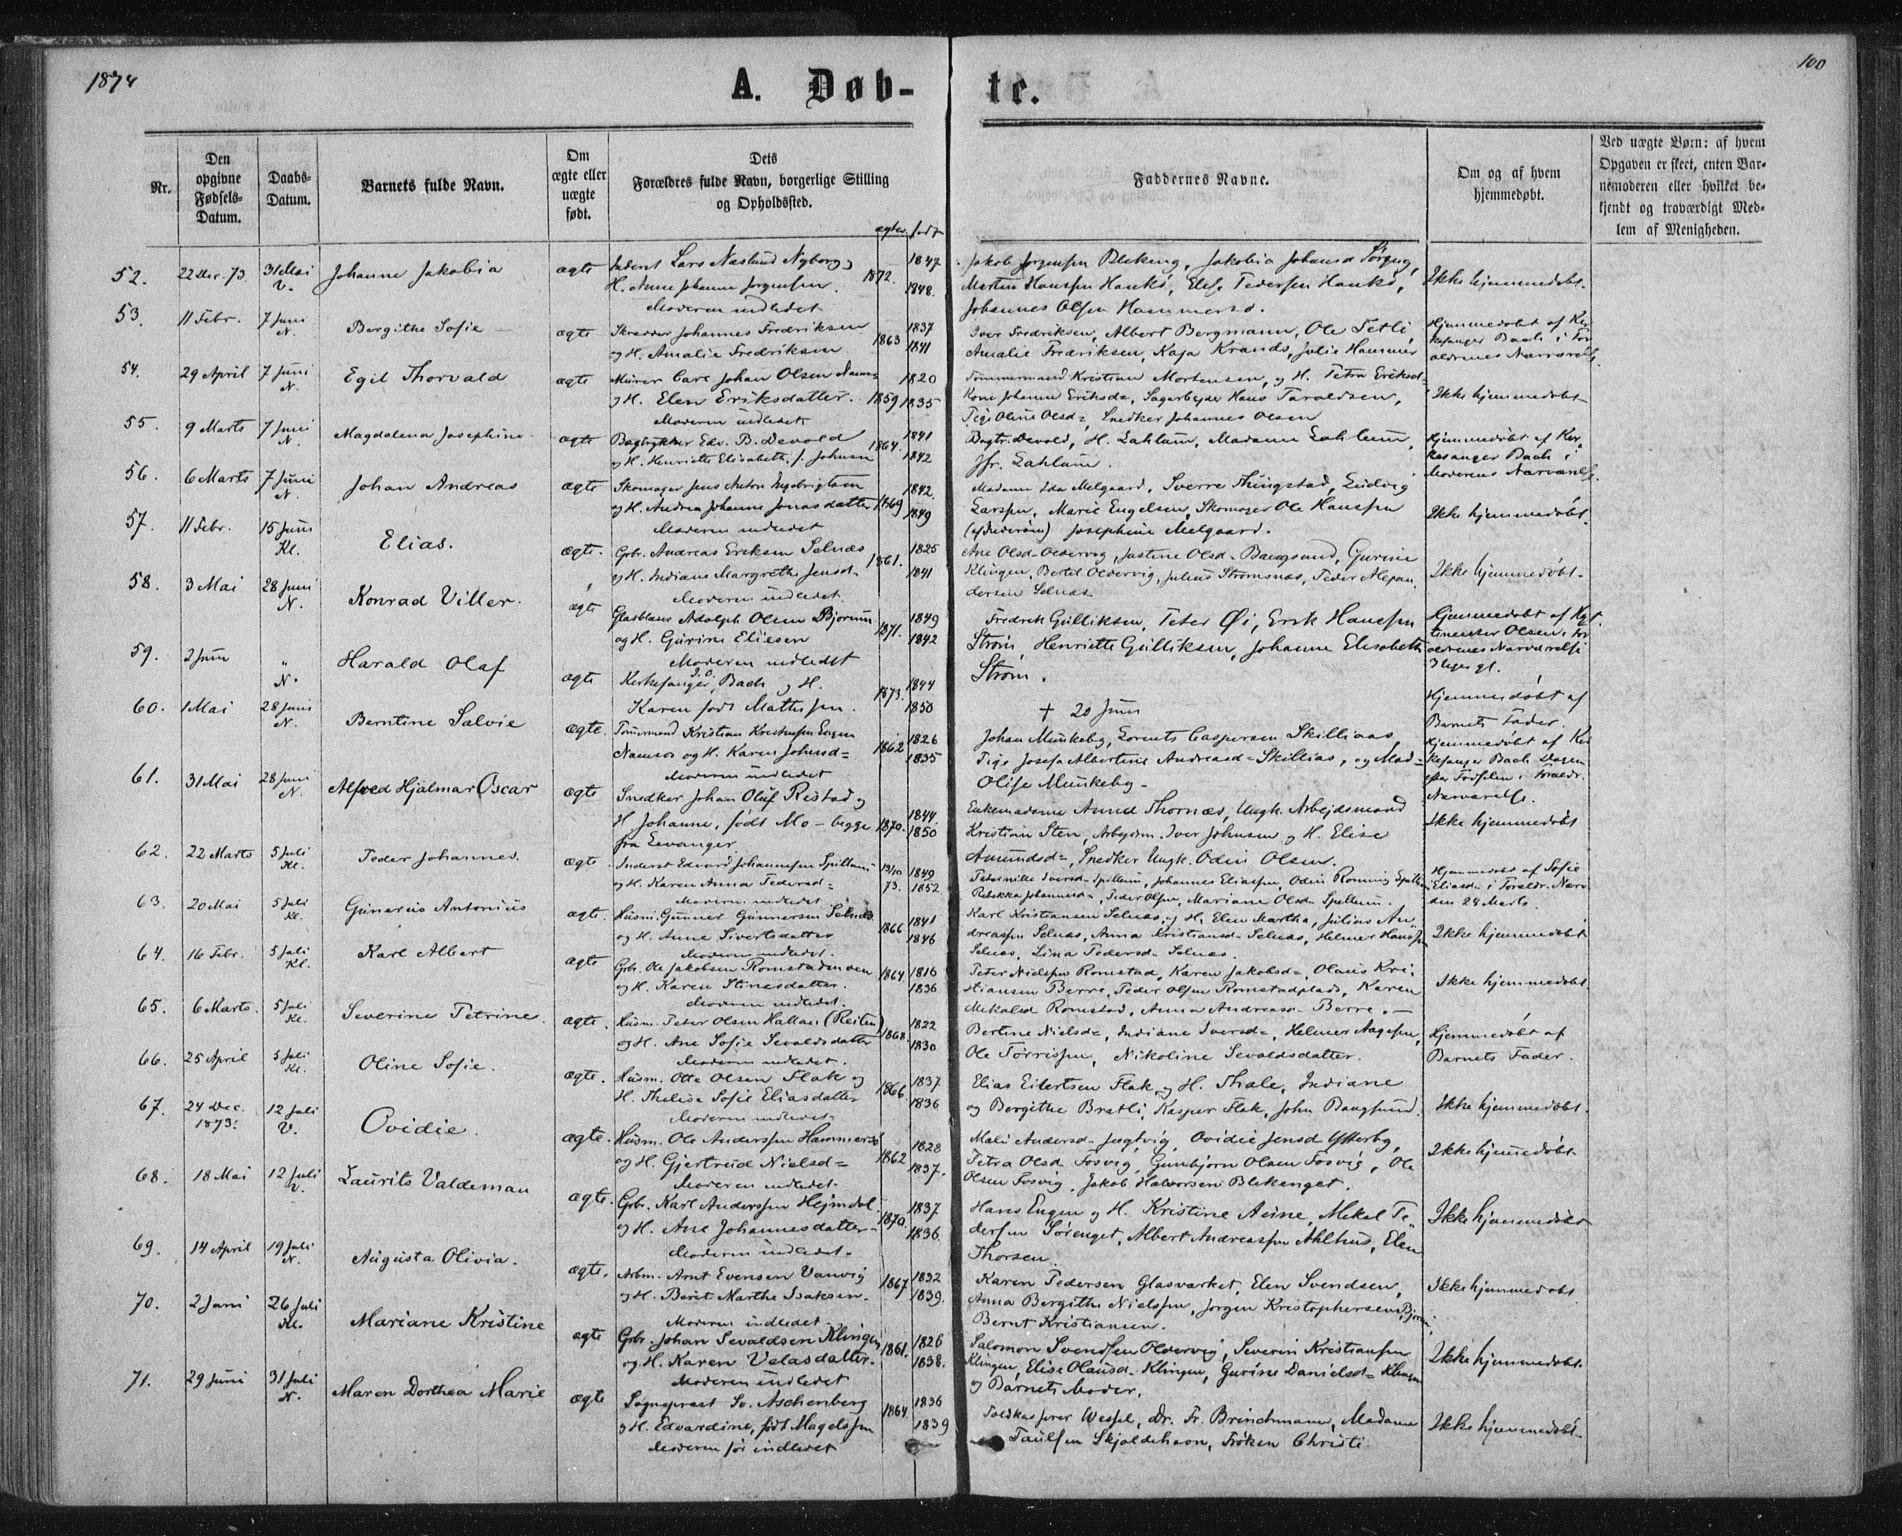 1874
100
A. Døb-
te.
Nr.
Den opgivne Fødsels-Datum.
Daabs-Datum.
Barnets fulde Navn.
Om ægte eller uægte født.
Dets Forældres fulde Navn, borgerlige Stilling og Opholdssted.
Faddernes Navne.
Om og af hvem hjemmedøbt.
Ved uægte Børn: af hvem
Opgaven er skeet, enten Bar-
nemoderen eller hvilket be-
kjendt og troværdigt Med-
lem af Menigheden.
52. 22 Dec. 73. 31 Mai V. Johanne Jakobia ægte
H. Anne Johanne Jørgensen. 1872. 1847 1848.
Moderen indledet
Ikke hjemmedøbt.
53. 11 Febr. 7 Juni N. Bergithe Sofie ægte Skrædder Johannes Fredriksen
og H. Amalie Fredriksen 1863 1837 1841
Iver Fredriksen, Albert Bergmann, Ole
Amalie Fredriksen, Kaja Krands, Julie Hammer
Hjemmedøbt af Kir-
kesanger Bach i For-
ældrenes Nærværelse.
54. 29 April 7 Juni N. Egil Thorvald ægte Murer Carl Johan Olsen
og H. Elen Eriksdatter. 1859 1820 1835
Moderen indledet
Tømmermand Kristian Mortensen, og H. Petra Eriksd=
Kone Johanne Eriksd=, Sagarbejder Hans Taraldsen,
Pige Oline Olsd=, Snedker Johannes Olsen
Ikke hjemmedøbt
55. 9 Marts 7 Juni N. Magdalena Josephine ægte Bogtrykker Edv. B. Devold
og H. Henriette Elisabeth, f. Johnsen 1864. 1841 1842
Bogtr. Devold, H. Lahlum, Madame Lahlum,
Jfr. Lahlum.
Hjemmedøbt af Kir-
kesanger Bach i
Moderens Nærværelse.
56. 6 Marts 7 Juni N. Johan Andreas ægte Skomager Jens Anton Ingebrigtsen
og H. Andrea Johanne Jonasdatter 1869 1842. 1849
Moderen indledet
Madame Ida Melgaard, Sverre Thingstad, Ludvig
Larsen, Marie Engelsen, Skomager Ole Hanssen
Josephine Melgaard.
Ikke hjemmedøbt.
57. 11 Febr. 15 Juni Kl. Elias. ægte. Gbr. Andreas Eriksen Selnæs
og H. Indiane Margrethe Jensd= 1861. 1825 1841
Moderen indledet.
Ane Olsd Oldervig, Justine Olsd= Bangsund, Gurine
Klingen, Bertel Oldervig, Julius Strømsnæs, Peder Alexan-
dersen Selnæs
Ikke hjemmedøbt.
58. 3 Mai 28 Juni N. Konrad Viller. ægte Glasblæser Adolph Olsen Bjørum
og H. Gurine Eliesen 1871. 1849 1842
Moderen indledet
Fredrik Gulliksen, Peter Øi, Erik Hanssen
Strøm, Henriette Gulliksen, Johanne Elisabeth
Strøm.
Hjemmedøbt af
Olsen i For-
ældrenes Nærværelse
3 Uger gl.
59. 2 Juni " N. Harald Olaf ægte Kirkesanger, Bach og H.
Karen født Mathisen. 1873. 1844 1850
† 20 Juni
Hjemmedøbt af
Barnets Fader.
60. 1 Mai 28 Juni N. Berntine Salvie ægte. Tømermand Kristian
Namsos og H. Karen Johnsd= 1862 1826 1835
Moderen indledet
Johan Munkeby, Lorents Caspersen Skilliaas
Pige Josefa Albertine Andreasd= Skillias, og Mad=
Olise Munkeby -
Hjemmedøbt af Kir-
kesanger Bach Dagen
efter Fødselen i Forældr.
Nærværelse.
61. 31 Mai 28 Juni N. Alfred Hjalmar Oscar ægte Snedker Johan Oluf Ristad og
H. Johanne, født Mo - begge
fra Levanger 1870. 1844. 1850
Enkemadame Anne Thornæs, Ungk. Arbejdsmand
Kristian Sten, Arbejdm. Iver Johnsen og H. Elise
Amundsd=, Snedker Ungk. Odin Olsen.
Ikke hjemmedøbt
62. 22 Marts 5 Juli Kl. Peder Johannes. ægte. Inderst Edvard Johannessen Spillum
og H. Karen Anna Pedersd= 13/10 73. 1849 1852
Moderen indledet.
Peternille Iversd= Spillum, Johannes Eliassen, Odin Romnig Spillum
Rebekka Johannesd=, Peder Olsen, Mariane Olsd Spellum.
Hjemmedøbt af Sofie
Eliasd= i Forældr. Nærv.
den 24 Marts.
63. 20 Mai 5 Juli Kl. Gunerius Antonius ægte. Husm. Gunner Gunnersen Selnæs
og H. Anne Sivertsdatter 1866 1841 1846
Moderen indledet.
Karl Kristiansen Selnæs, og H. Elen Martha, Julius An-
dreassen Selnæs, Anna Kristiansd= Selnæs, Helmer Hanssen
Selnæs, Lina Pedersd= Selnæs.
Ikke hjemmedøbt
64. 16 Febr. 5 Juli Kl. Karl Albert ægte Gbr. Ole Jakobsen Romstad
og H. Karen Stinesdatter. 1864 1816 1836
Moderen indledet.
Peter Nielssen Romstad, Karen Jakobsd=, Olaus Kri-
stiansen Berre, Peder Olsen Romstadplads, Karen
Mekalsd Romstad, Anna Andreasd= Berre. -
Ikke hjemmedøbt.
65. 6 Marts. 5 Juli Kl. Severine Petrine. ægte. Husm. Peter Olsen Hallan (Reiten)
og H. Ane Sofie Sevaldsdatter 1868. 1822 1830
Moderen indledet.
Bertine Nielsd=, Indiane Iversd=, Helmer Aagesen,
Ole Tørrissen, Nikoline Sevaldsdatter.
Hjemmedøbt af
Barnets Fader.
66. 25 April 5 Juli Kl. Oline Sofie. ægte. Husm. Otte Olsen Flak og
H. Thelise Sofie Eliasdatter 1866. 1837 1836
Moderen indledet.
Elias Eilertsen Flak og H. Thale, Indiane
og Bergithe Bratli, Kasper Flak, John Bangsund.
Ikke hjemmedøbt.
67. 24 Dec. 1873. 12 Juli V. Ovidie. ægte. Husm. Ole Anderssen Hammersø
og H. Gjertrud Nielsd= 1862 1828 1837.
Moderen indledet.
Mali Andersd= Jægtvig, Ovidie Jensd Ytterby,
Petra Olsd Fosvig, Gunbjørn Olsen Fosvig, Ole
Olsen Fosvig, Jakob Halvorsen Blekenget.
Ikke hjemmedøbt
68. 18 Mai 12 Juli V. Laurits Valdeman ægte. Gbr. Karl Anderssen Hejmdal
og H. Ane Johannesdatter. 1870. 1837 1836.
Moderen indledet.
Hans Engen og H. Kristine Aune, Mekel Pe-
dersen Sørenget, Albert Andreassen Ahlhus, Elen
Thorsen.
Ikke hjemmedøbt
69. 14 April 19 Juli N. Augusta Olivia. ægte. Arbm. Arnt Evensen Vanvig
og H. Beret Marthe Isaksen. 1867 1832 1839.
Moderen indledet.
Karen Pedersen Glasværket, Elen Svendsen,
Anna Bergithe Nielssen, Jørgen Kristophersen
Bernt Kristiansen.
Ikke hjemmedøbt
70. 2 Juni 26 Juli Kl. Mariane Kristine ægte Gbr. Johan Sevaldsen Klingen
og H. Karen Velasdatter. 1861. 1826 1838.
Moderen indledet
Salomon Svendsen Oldervig, Severin Kristiansen
Klingen, Elise Olausd= Klingen, Gurine Danielsd= Klingen
og Barnets Moder.
Ikke hjemmedøbt.
71. 29 Juni 31 Juli N. Maren Dorthea Marie ægte Sogneprest Sv. Aschenberg
og H. Edvardine, født Magelssen 1864. 1836 1839
Moderen før indledet
Toldkasserer Wessel, Dr. Fr. Brinchmann, Madame
Paulsen Skjoldehavn, Frøken Christi.
Ikke hjemmedøbt.